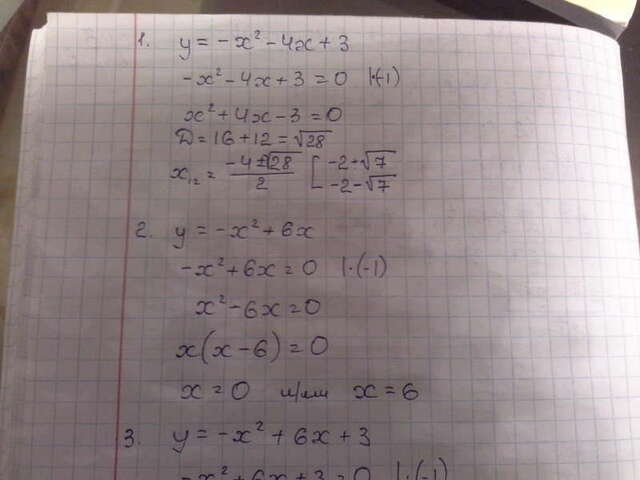 1. y = -x² - 4x + 3
-x² - 4x + 3 = 0 |·(-1)
x² + 4x - 3 = 0
D = 16 + 12 = √28
x₁₂ = (-4 ± √28)/2 [ -2 + √7
-2 - √7
2. y = -x² + 6x
-x² + 6x = 0 |·(-1)
x² - 6x = 0
x(x - 6) = 0
x = 0 и/или x = 6
3. y = -x² + 6x + 3
-x² + 6x + 3 = 0 |·(-1)